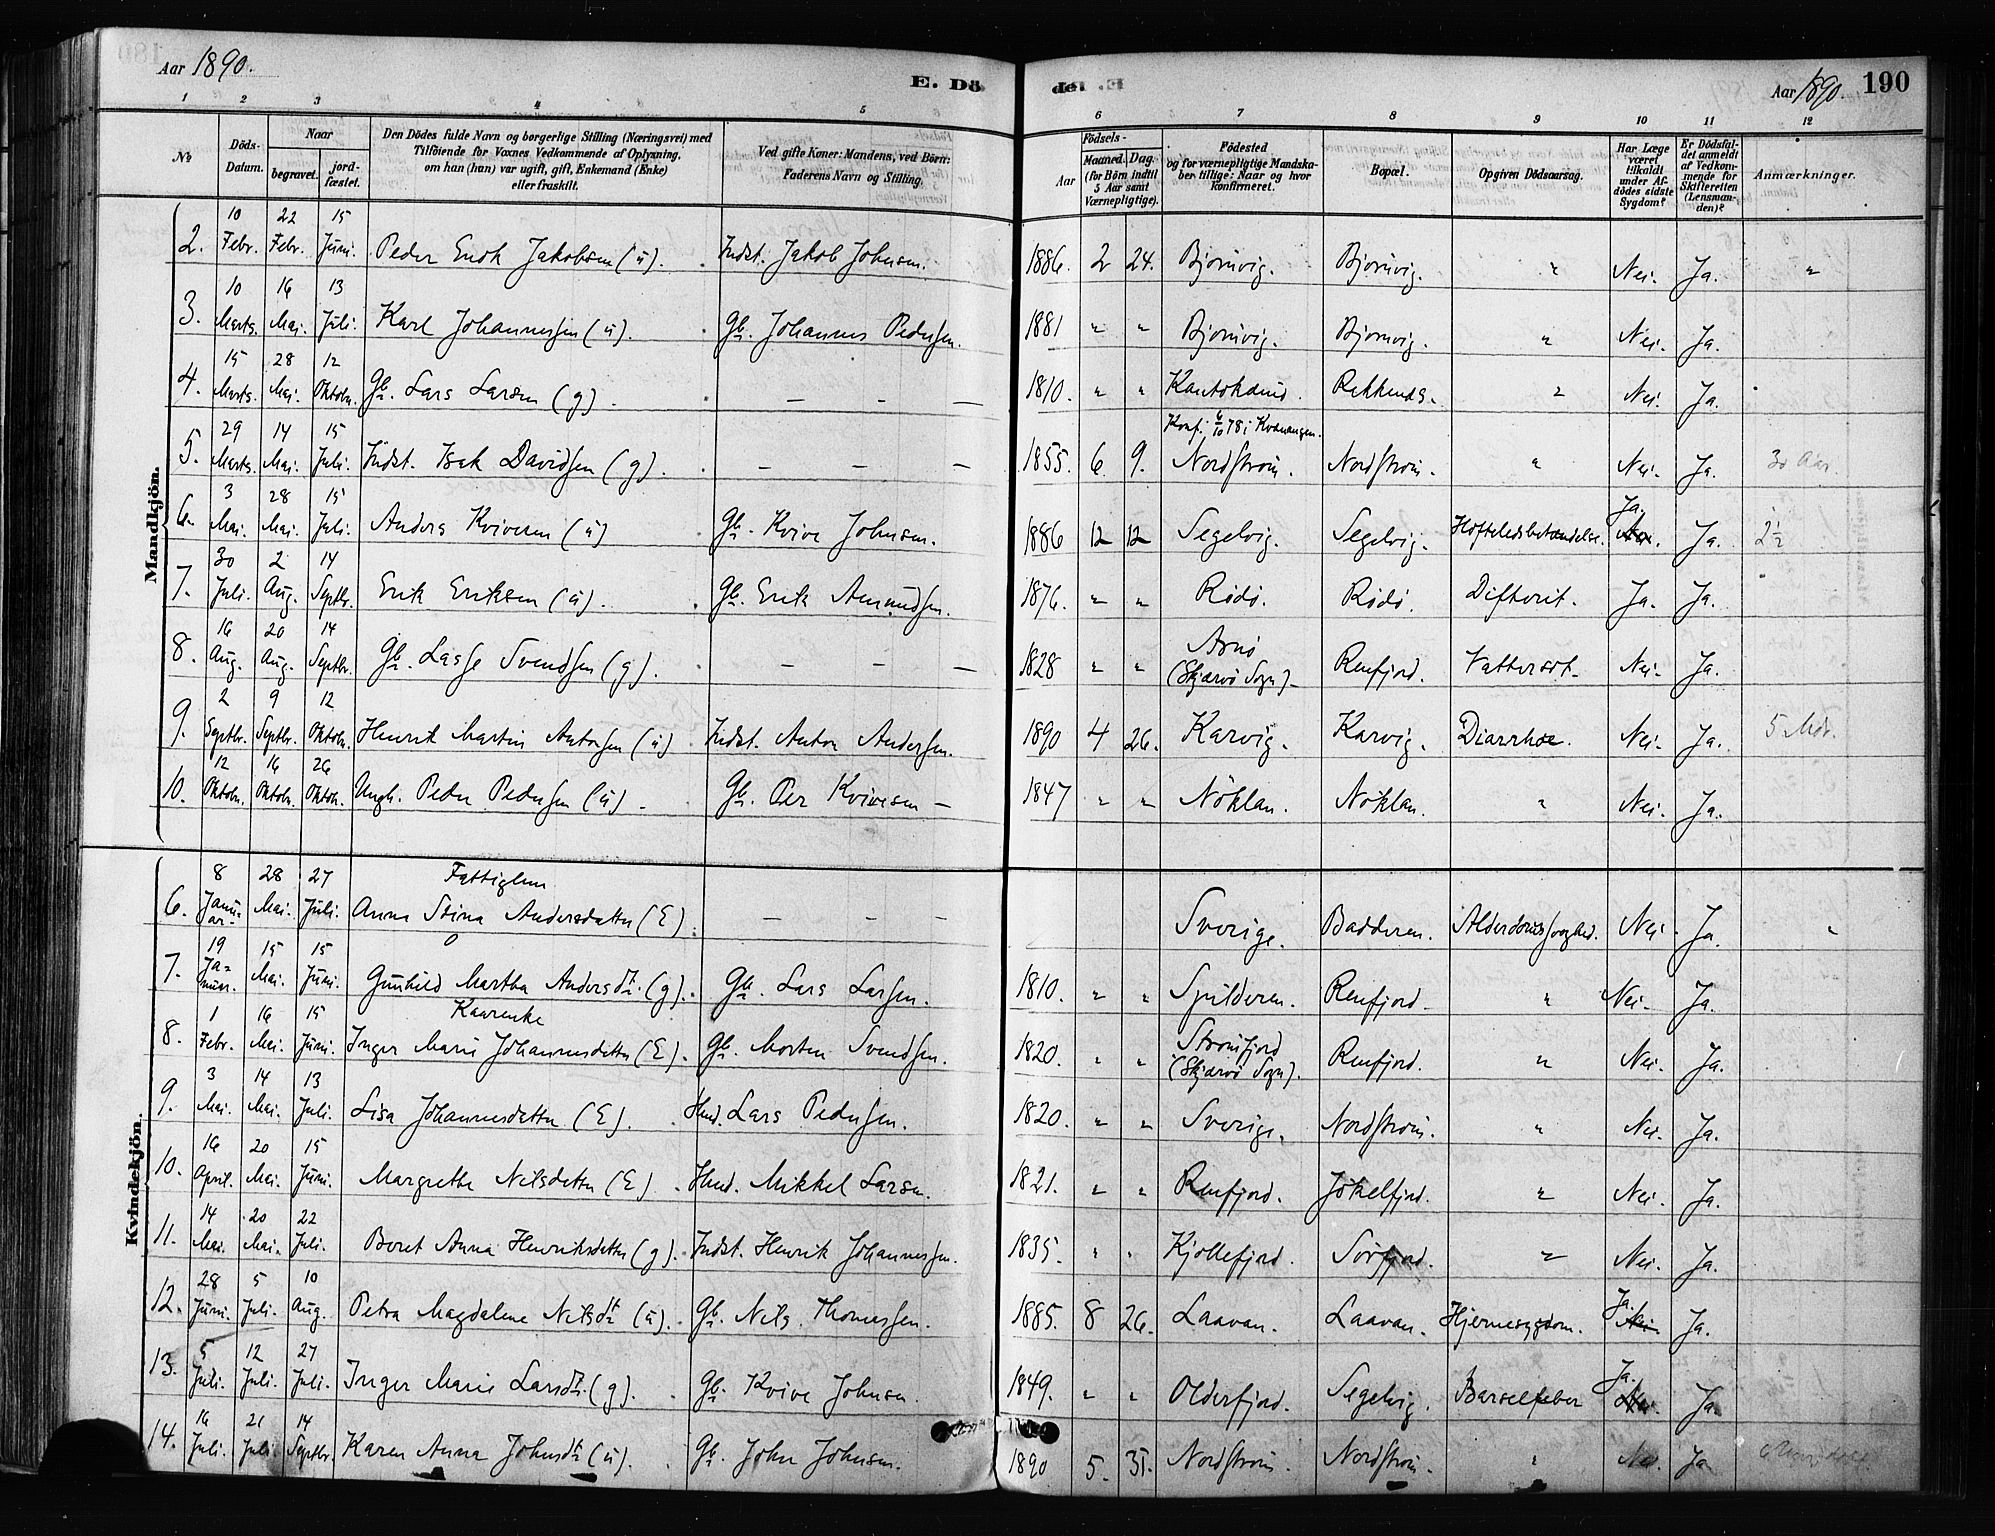 Aar 1890.
E. Dö
de.
Aar 1890. 190
1 2 3 4 5 6 7 8 9 10 11 12
No
Döds-Datum.
Naar
begravet.
jord-fæstet.
Den Dödes fulde Navn og borgerlige Stilling (Næringsvei) med
Tilföiende for Voxnes Vedkommende af Oplysning,
om han (hun) var ugift, gift, Enkemand (Enke)
eller fraskilt.
Ved gifte Koner: Mandens, ved Börn:
Faderens Navn og Stilling.
Födsels-
Aar
Maaned. Dag.
(for Börn indtil
5 Aar samt
Værnepligtige).
Födested
og for værnepligtige Mandska-
ber tillige: Naar og hvor
konfirmeret.
Bopæl.
Opgiven Dödsaarsag.
Har Læge
været
tilkaldt
under Af-
dödes sidste
Sygdom?
Er Dödsfal-
det anmeldt
af Vedkom-
mende for
Skifteretten
(Lensman-
den)?
Anmærkninger.
Mandkjön.
2. 10 Febr. 22 Febr. 15 Juni. Peder Enok Jakobsen (u). Indst. Jakob Johnsen. 1886. 2 24. Bjornvig. Bjornvig. " Nei. Ja. "
3. 10 Marts. 16 Mai. 13 Juli. Karl Johannessen (u). Gb. Johannes Pedersen. 1881 " " Bjornvig. Bjornvig. " Nei. Ja.
4. 15 Marts. 28 Mai. 12 Oktobr. Gb. Lars Larsen (g). — — — 1810. " " Kautokeino. " Nei. Ja.
5. 29 Marts. 14 Mai. 15 Juli. Indst. Isak Davidsen (g). — — — 1855. 6. 9. Konf. 6/10 78 i Kvænangen. Nordstrøm. Nordstrøm. " Nei. Ja. 30 Aar.
6. 3 Mai. 28 Mai. 15 Juli. Anders Kvivesen (u) Gb. Kvive Johnsen. 1886 12 12 Segelvig. Segelvig. Hofteledsbetændelse. Ja. Nei. Ja. 2½
7. 30 Juli. 2 Aug. 14 Septbr. Erik Eriksen (u). Gb. Erik Amundsen. 1876. " " Rödö. Rödö. Difterit. Ja. Ja.
8. 16 Aug. 20 Aug. 14 Septbr. Gb. Lasse Svendsen (g). — — — 1828 " " Arnö (Skjærvö Sogn). Renfjord. Vattersot. Nei. Ja.
9. 2 Septbr. 9 Septbr. 12 Oktobr. Henrik Martin Antonsen (u) Indst. Anton Andersen. 1890 4 26. Karvig. Karvig. Diarrhoe. Nei. Ja. 5 Mdr.
10. 12 Oktobr. 16 Oktobr. 26 Oktobr. Ungk. Peder Pedersen (u). Gb. Per Kvivesen — 1847 " " Nöklan. Nöklan. " Nei. Ja.
Kvindekjön.
6. 8 Januar. 28 Mai. 27 Juli. Fattiglem Anna Stina Andersdatter (E). — — — Sverige. Badderen. Alderdomssvaghed. Nei. Ja. "
7. 19 Januar. 15 Mai. 15 Juni. Gunhild Martha Andersdtr. (g). Gb. Lars Larsen. 1810. " " Spilderen. Renfjord. " Nei. Ja.
8. 1 Febr. 16 Mai. 15 Juni. Kaarenke Inger Marie Johannesdatter (E). Gb. Morten Svendsen. 1820. " " Stromfjord (Skjærvö Sogn). Renfjord. " Nei. Ja.
9. 3 Mai. 14 Mai. 13 Juli. Lisa Johannesdatter (E). Hmd. Lars Pedersen. 1820. " " Sverige. Nordstrøm. " Nei. Ja.
10. 16 April. 20 Mai. 15 Juni. Margrethe Nilsdatter (E). Hmd. Mikkel Larsen. 1821. " " Renfjord. Jökelfjord. " Nei. Ja.
11. 14 Mai. 20 Mai. 22 Juli. Beret Anna Henriksdatter (g). Indst. Henrik Johannessen. 1835. " " Kjöllefjord. Sørfjord. " Nei. Ja.
12. 28 Juni. 5 Juli. 10 Aug. Petra Magdalene Nilsdtr (u). Gb. Nils Thomessen. 1885. 8 26. Laavan. Laavan. Hjernesygdom. Ja. Nei. Ja.
13. 5 Juli. 12 Juli. 27 Juli. Inger Marie Larsdtr. (g). Gb. Kvive Johnsen 1849. " " Olderfjord. Segelvig. Barselfeber Ja. Nei. Ja.
14. 16 Juli. 21 Juli. 14 Septbr. Karen Anna Johnsdtr (u). Gb. John Johnsen. 1890 5. 31. Nordstrøm. Nordstrøm. " Nei. Ja